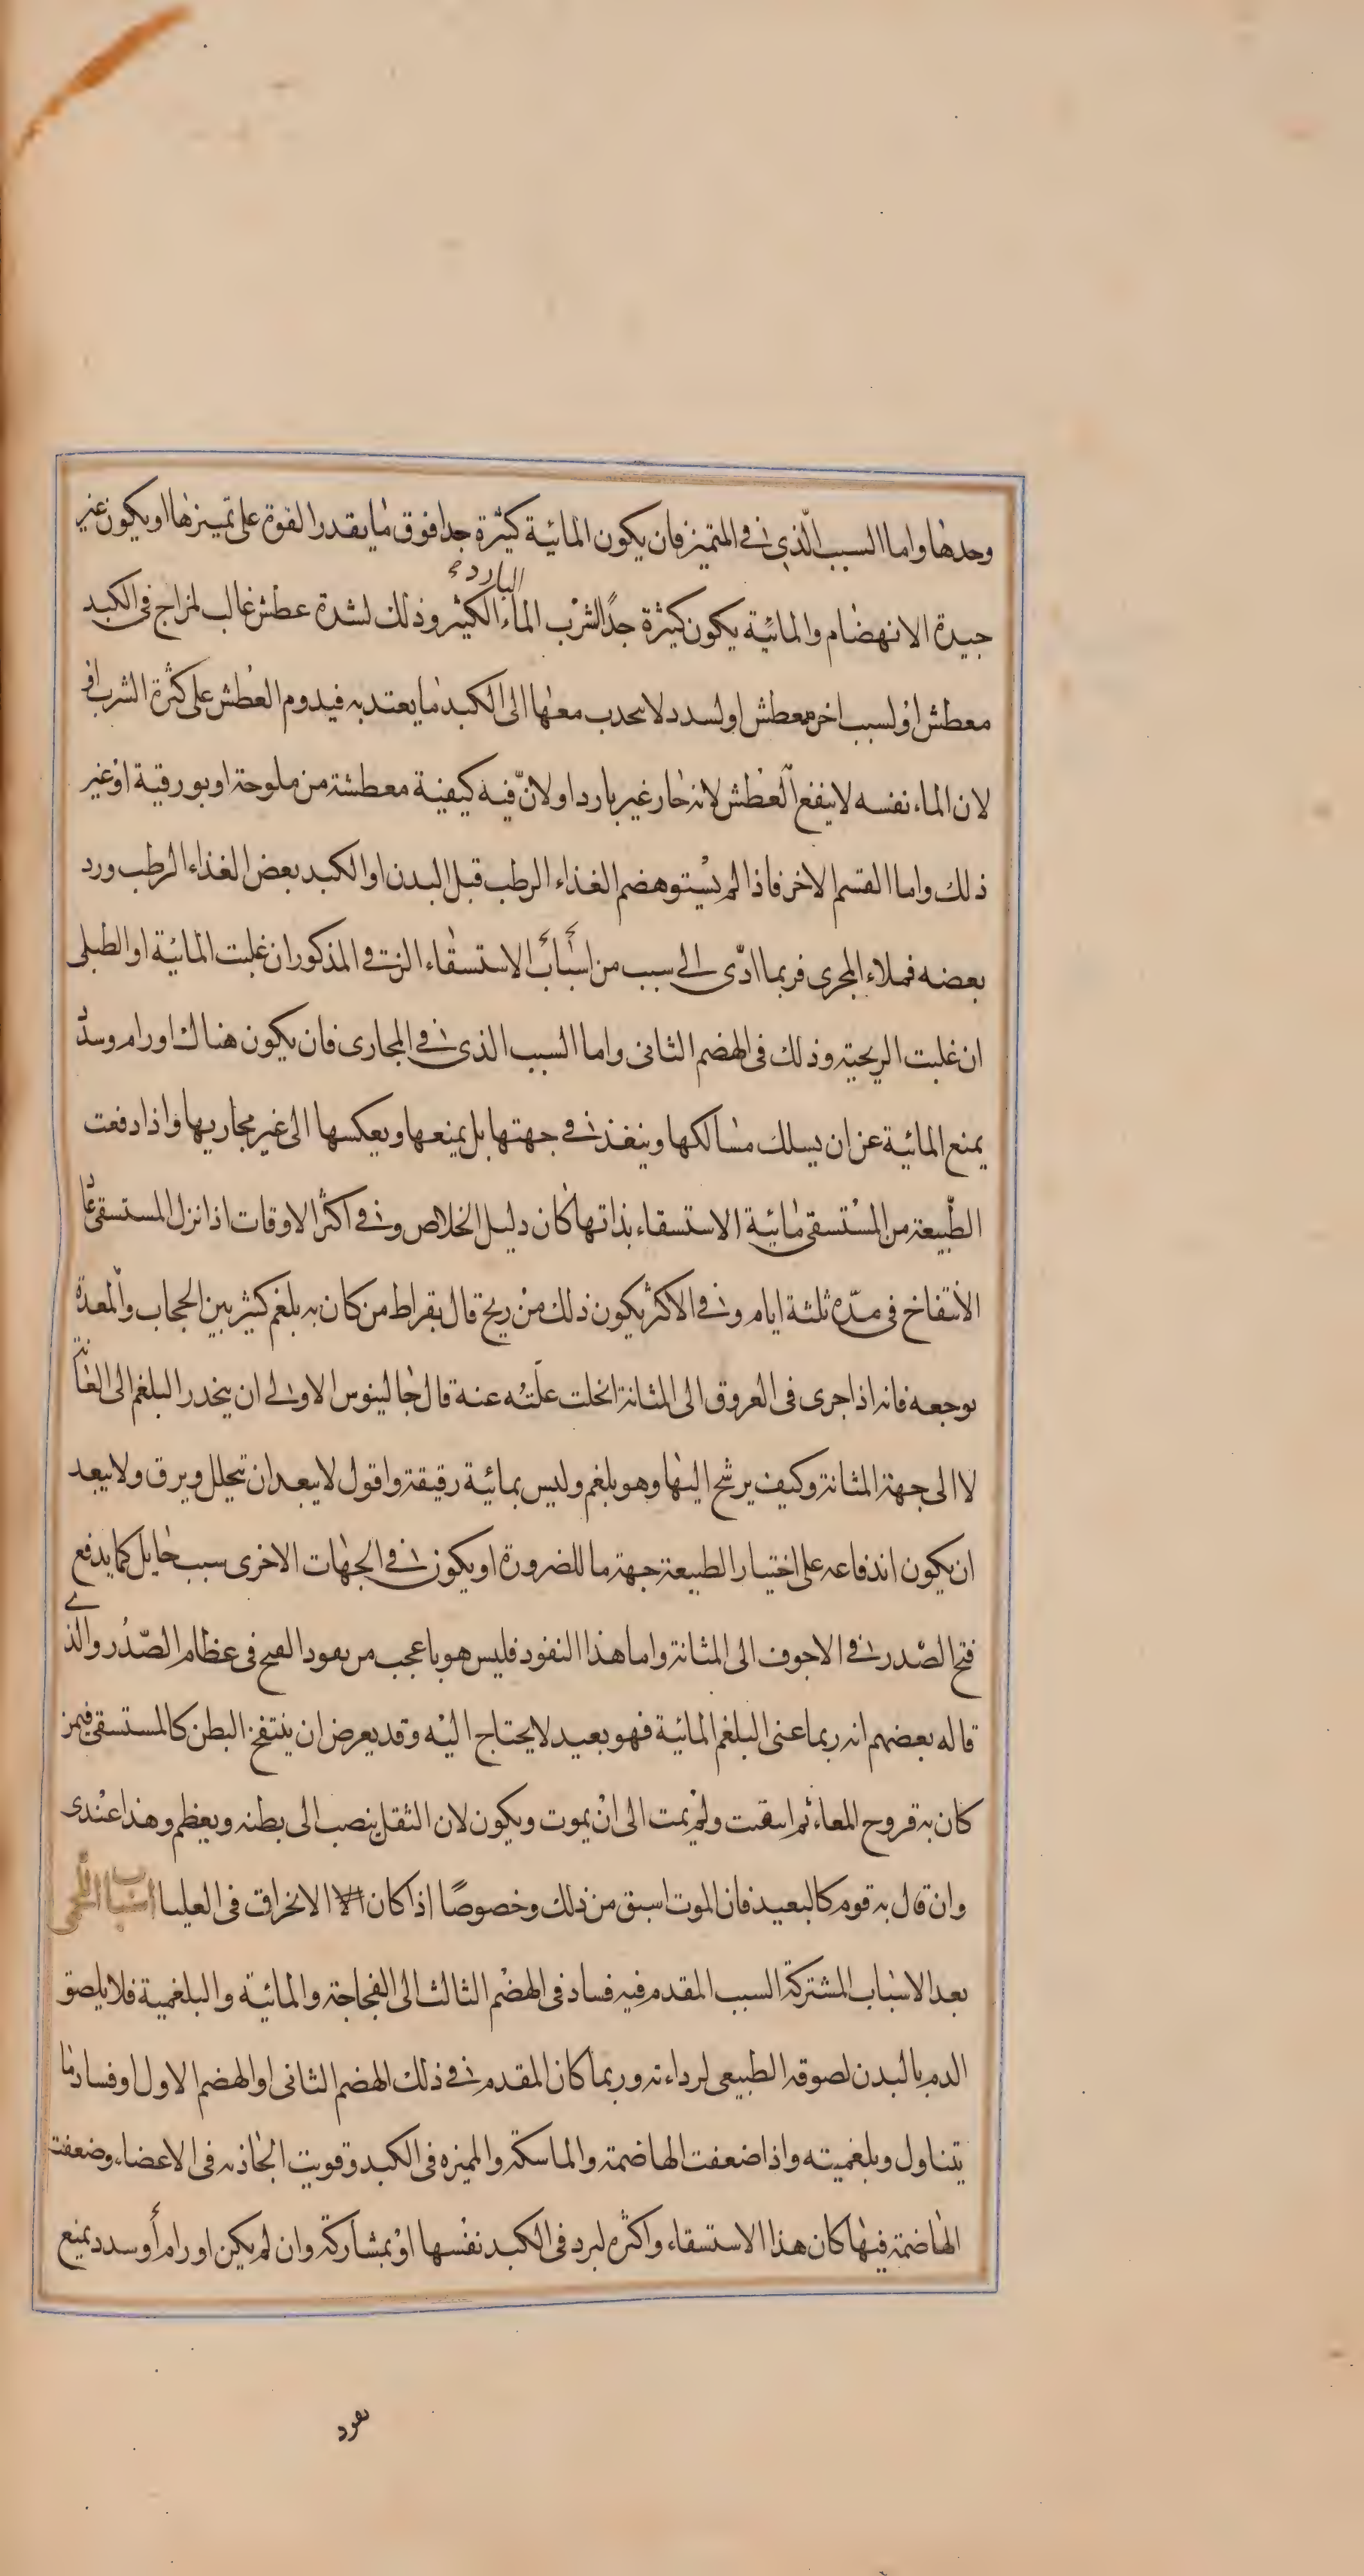 وحدها واما السبب الذى فى المتميز فان يكون المائية كثيرة جدا فوق ما يقدر القوة على تمييزها او يكون غير
البارد
جيدة الانهضام والمائية يكون كثيرة جدًا لشرب الماء الكثير وذلك لشدة عطش غالب لمزاج فى الكبد
معطش او لسبب اخر معطش او لسدد لا ىحدب معها الى الكبد ما يعتد به فيدوم العطش على كثرة الشرب او
لان الماء نفسه لا ينفع العطش لانه حار غير بارد او لانّ فيه كيفية معطشة من ملوحة او بورقية او غير
ذلك واما القسم الاخر فاذا لم يستو هضم الغذاء الرطب قبل البدن او الكبد بعض الغذاء الرطب ورد
بعضه فملاء المجرى فربما ادّى الى سبب من اسباب الاستسقاء الزقى المذكور ان غلبت المائية او الطبلى
ان غلبت الريحية وذلك فى الهضم الثانى واما السبب الذى فى المجارى فان يكون هناك اورام وسدد
يمنع المائية عن ان يسلك مسالكها وينفذ فى جهتها بل يمنعها ويعكسها الى غير مجاريها واذا دفعت
الطّبيعة من المستسقى مائية الاستسقاء بذاتها كان دليل الخلاص وفى اكثر الاوقات اذا نزل المستسقى عا
الانتفاخ فى مدّة ثلثة ايام وفى الاكثر يكون ذلك من ريح قال بقراط من كان به بلغم كثير بين الحجاب والمعدة
يوجعه فانه اذا جرى فى العروق الى المثانة انحلت علّته عنه قال جالينوس الاولى ان ينحدر البلغم الى العانة
لا الى جهة المثانة وكيف يرشح اليها وهو بلغم وليس بمائية رقيقة واقول لا يبعد ان يتحلل ويرق ولا يبعد
ان يكون اندفاعه على اختيار الطبيعة جهة ما للضرورة او يكون فى الجهات الاخرى سبب حايل كما يدفع
فتح الصّدر فى الاجوف الى المثانة واما هذا النفود فليس هو باعجب من نفود القيح فى عظام الصّدر والذى
قاله بعضهم انه ربما عنى البلغم المائية فهو بعيد لا يحتاج اليه وقد يعرض ان ينتفخ البطن كالمستسقى فيمن
كان به قروح المعاء ثم انثقبت ولم يمت الى ان يموت ويكون لان الثفل ينصب الى بطنه ويعظم وهذا عندى
وان قال به قوم كالبعيد فان الموت اسبق من ذلك وخصوصًا اذا كان الانخراق فى العليا اسباب اللحمى
بعد الاسباب المشتركة السبب المقدم فيه فساد فى الهضم الثالث الى الفجاجة والمائية والبلغمية فلا يلصق
الدم بالبدن لصوقه الطبيعى لرداءته وربما كان المقدم فى ذلك الهضم الثانى او الهضم الاول او فساد ما
يتناول وبلغميته واذا ضعفت الهاضمة والماسكة والمميزه فى الكبد وقويت الجاذبه فى الاعضاء وضعفت
الهاضمة فيها كان هذا الاستسقاء واكثره لبرد فى الكبد نفسها او بمشاركة وان لم يكن اورام أو سدد يمنع
نفود